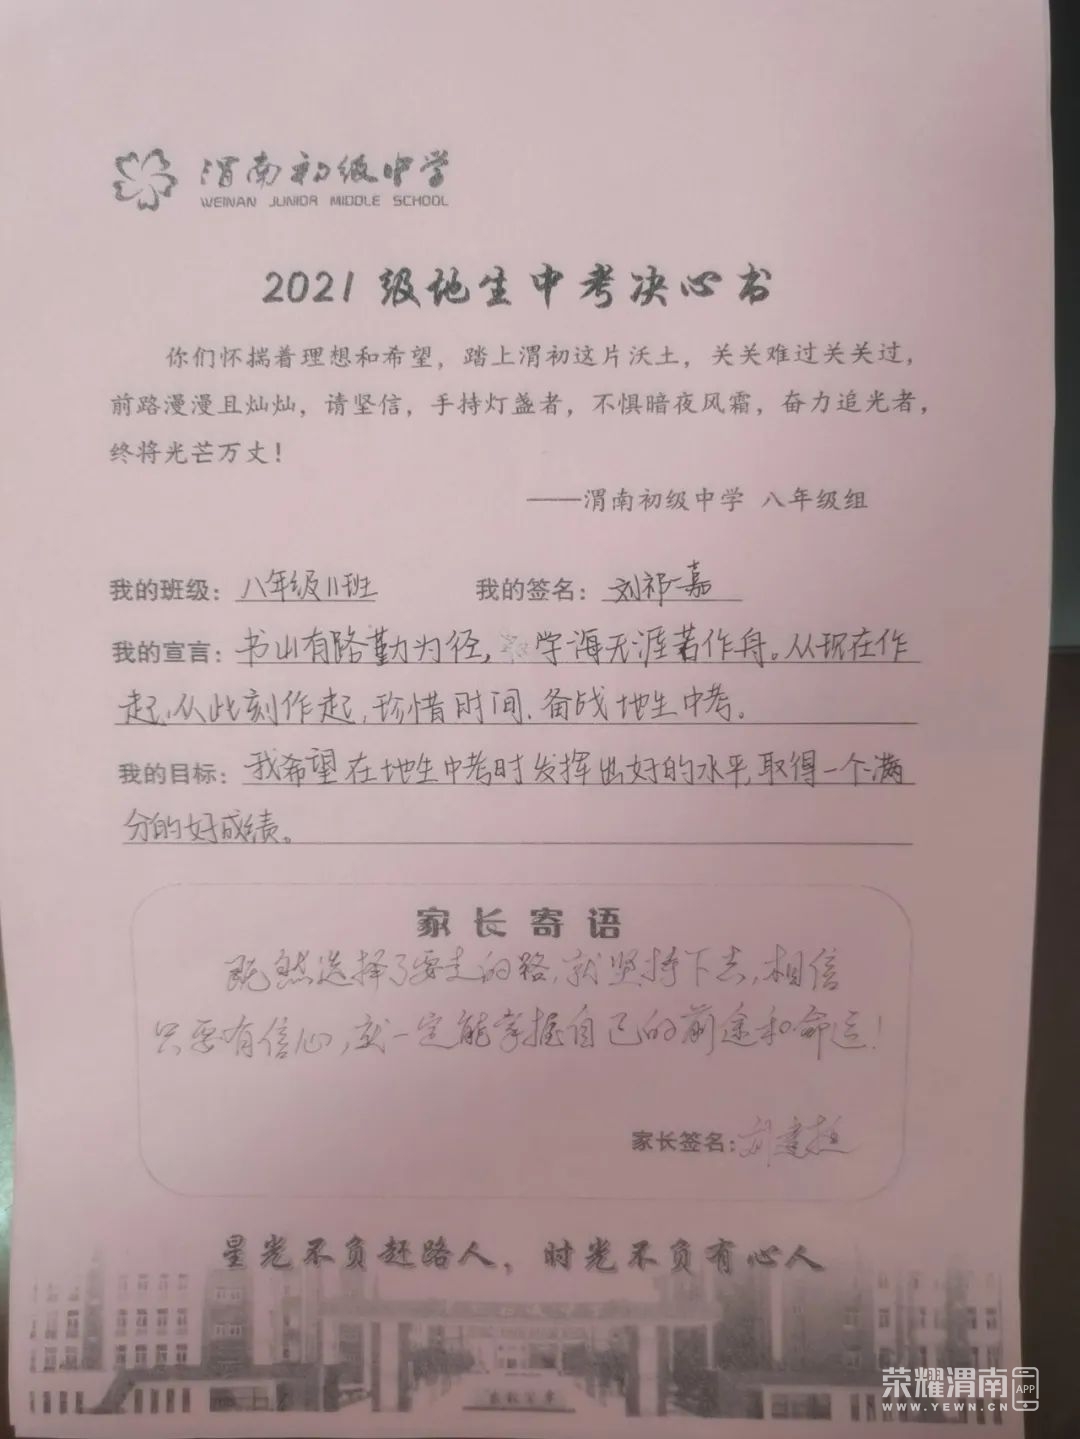 渭南初级中学
WEINAN JUNIOR MIDDLE SCHOOL
2021级地生中考决心书
你们怀揣着理想和希望，踏上渭初这片沃土，关关难过关关过，
前路漫漫且灿灿，请坚信，手持灯盏者，不惧暗夜风霜，奋力追光者，
终将光芒万丈！
——渭南初级中学 八年级组
我的班级：八年级11班 我的签名：刘祁一嘉
我的宣言：书山有路勤为径，学海无涯若作舟。从现在作
起，从此刻作起，珍惜时间、备战地生中考。
我的目标：我希望在地生中考时发挥出好的水平，取得一个满
分的好成绩。
家长寄语
既然选择了要走的路，就坚持下去，相信
只要有信心，就一定能掌握自己的前途和命运！
家长签名：刘建
星光不负赶路人，时光不负有心人
荣耀渭南 APP
WWW.YEWN.CN